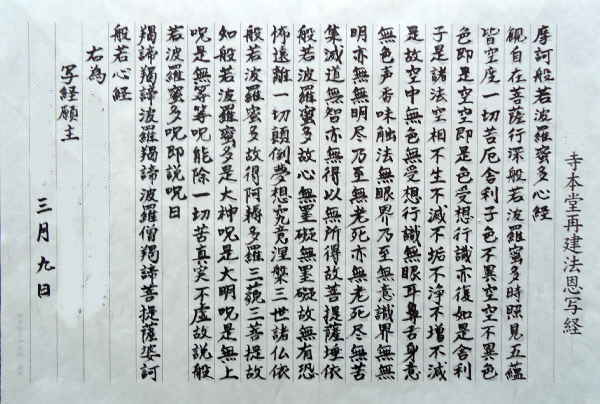 寺本堂再建法恩写経
摩訶般若波羅蜜多心経
観自在菩薩行深般若波羅蜜多時照見五蘊
皆空度一切苦厄舎利子色不異空空不異色
色即是空空即是色受想行識亦復如是舎利
子是諸法空相不生不滅不垢不浄不増不減
是故空中無色無受想行識無眼耳鼻舌身意
無色声香味触法無眼界乃至無意識界無無
明亦無無明尽乃至無老死亦無老死尽無苦
集滅道無智亦無得以無所得故菩提薩埵依
般若波羅蜜多故心無罣礙無罣礙故無有恐
怖遠離一切顛倒夢想究竟涅槃三世諸仏依
般若波羅蜜多故得阿耨多羅三藐三菩提故
知般若波羅蜜多是大神呪是大明呪是無上
呪是無等等呪能除一切苦真実不虚故説般
若波羅蜜多呪即説呪曰
羯諦羯諦波羅羯諦波羅僧羯諦菩提薩婆訶
般若心経
右為
写経願主
三月九日